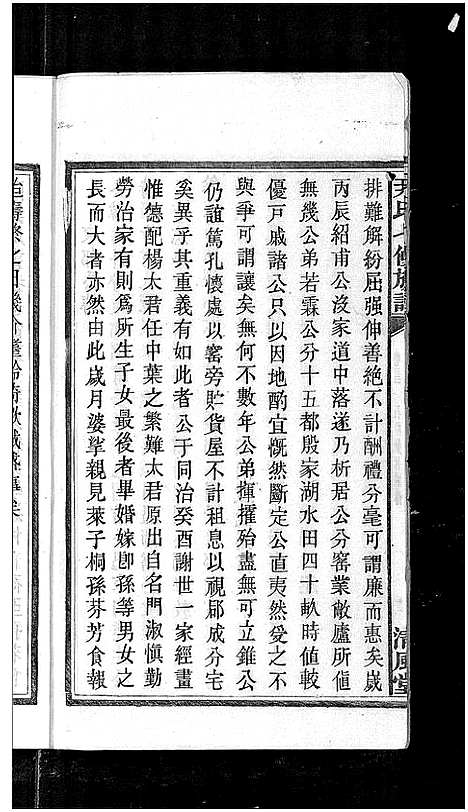 尹氏七修族譜
清風堂
排難解紛屈强伸善絶不計酬禮分毫可謂廉而惠矣歲
丙辰紹甫公沒家道中落遂乃析居公分窰業敝廬所値
無幾公弟若霖公分十五都殷家湖水田四十畝時値較
優戸戚諸公只以因地酌宜慨然斷定公直夷然受之不
與爭可謂讓矣無何不數年公弟揮擢殆盡無可立錐公
仍誼篤孔懷處以窰旁貯貨屋不計租息以視郈成分宅
奚異乎其重義有如此者公于同治癸酉謝世一家經畫
惟德配楊太君任中葉之繁難太君原出自名門淑愼勤
勞治家有則爲所生子女最後者畢婚嫁卽孫等男女之
長而大者亦然由此歲月婆娑親見萊子桐孫芬芳食報